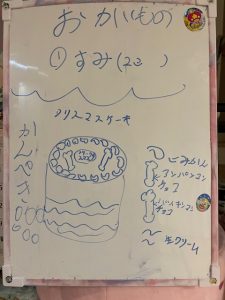 おかいもの
① すみ(
クリスマスケーキ
かんぺき
みかん
アンパンマン
チョコ
バイキンマン
チョコ
生クリーム